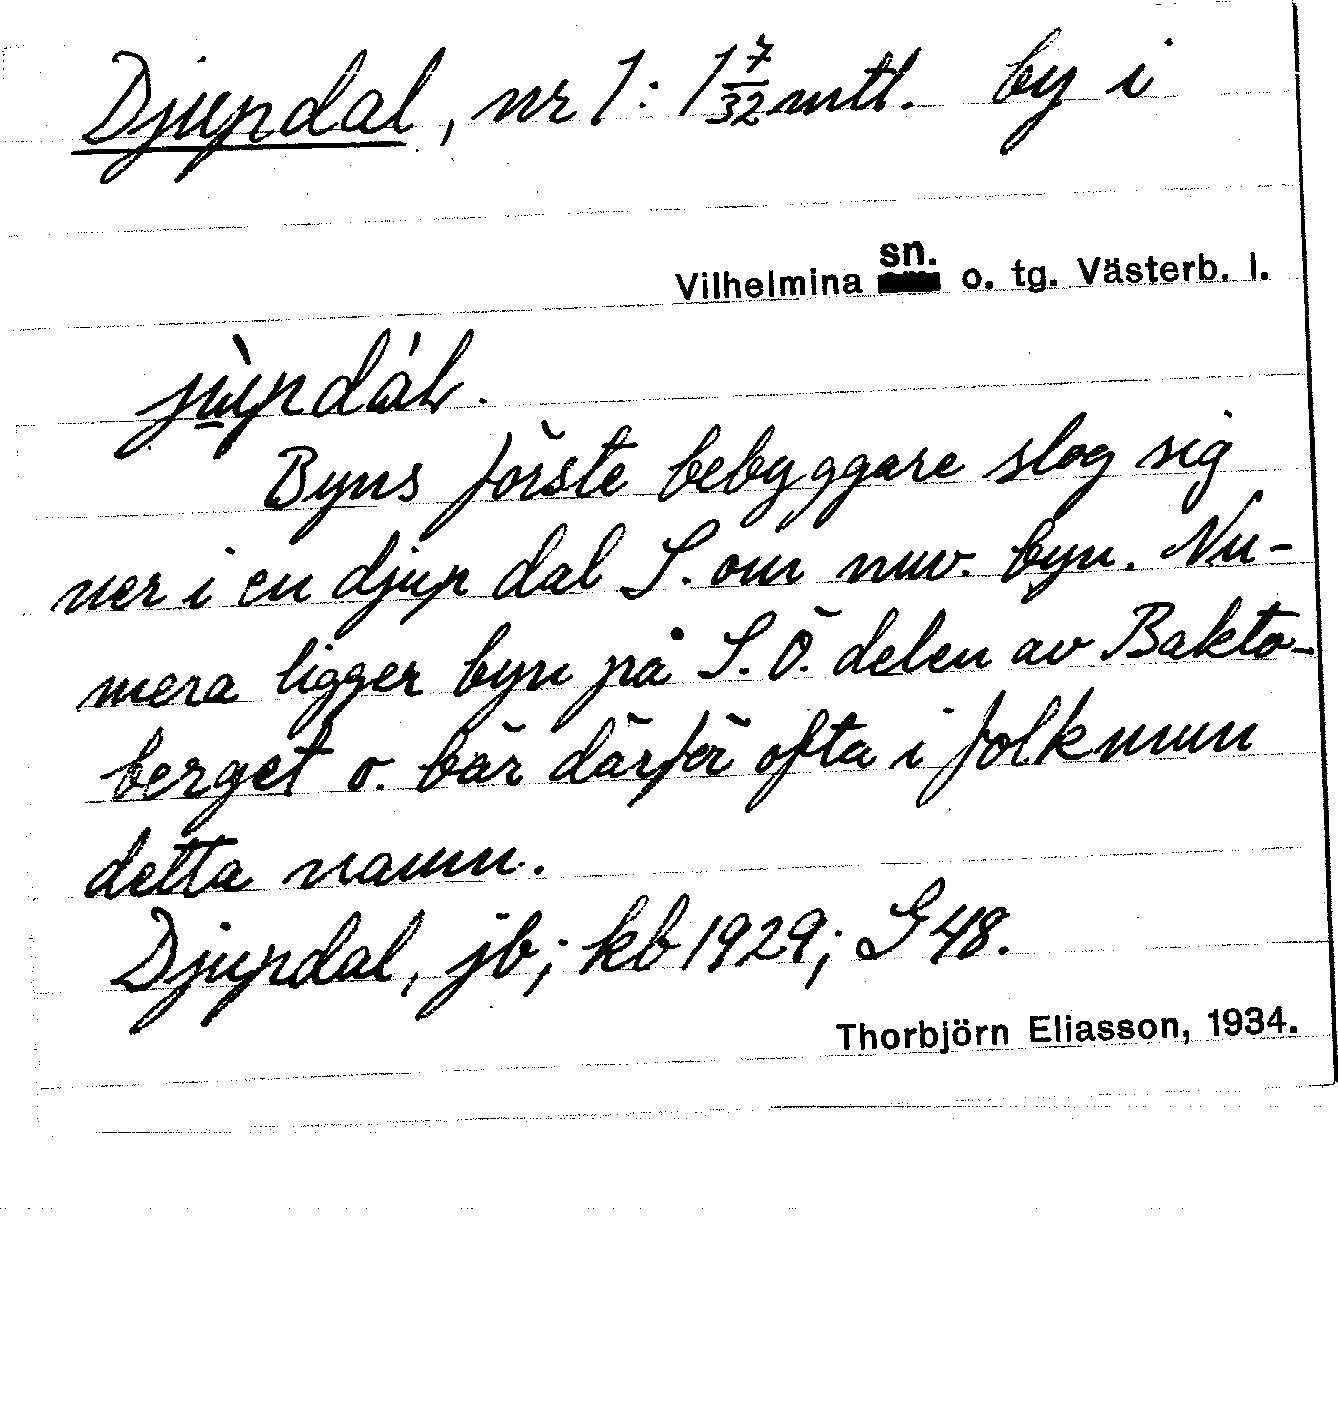 Djupdal, nr 1: 1 7/32 mtl. by i
Vilhelmina sn. o. tg. Västerb. l.
Byns förste bebyggare slog sig
ner i en djup dal S. om nuv. byn. Nu-
mera ligger byn på S.Ö. delen av Bakto-
berget o. bär därför ofta i folkmun
detta namn.
Djupdal, jb; kb 1929; G 48.
Thorbjörn Eliasson, 1934.